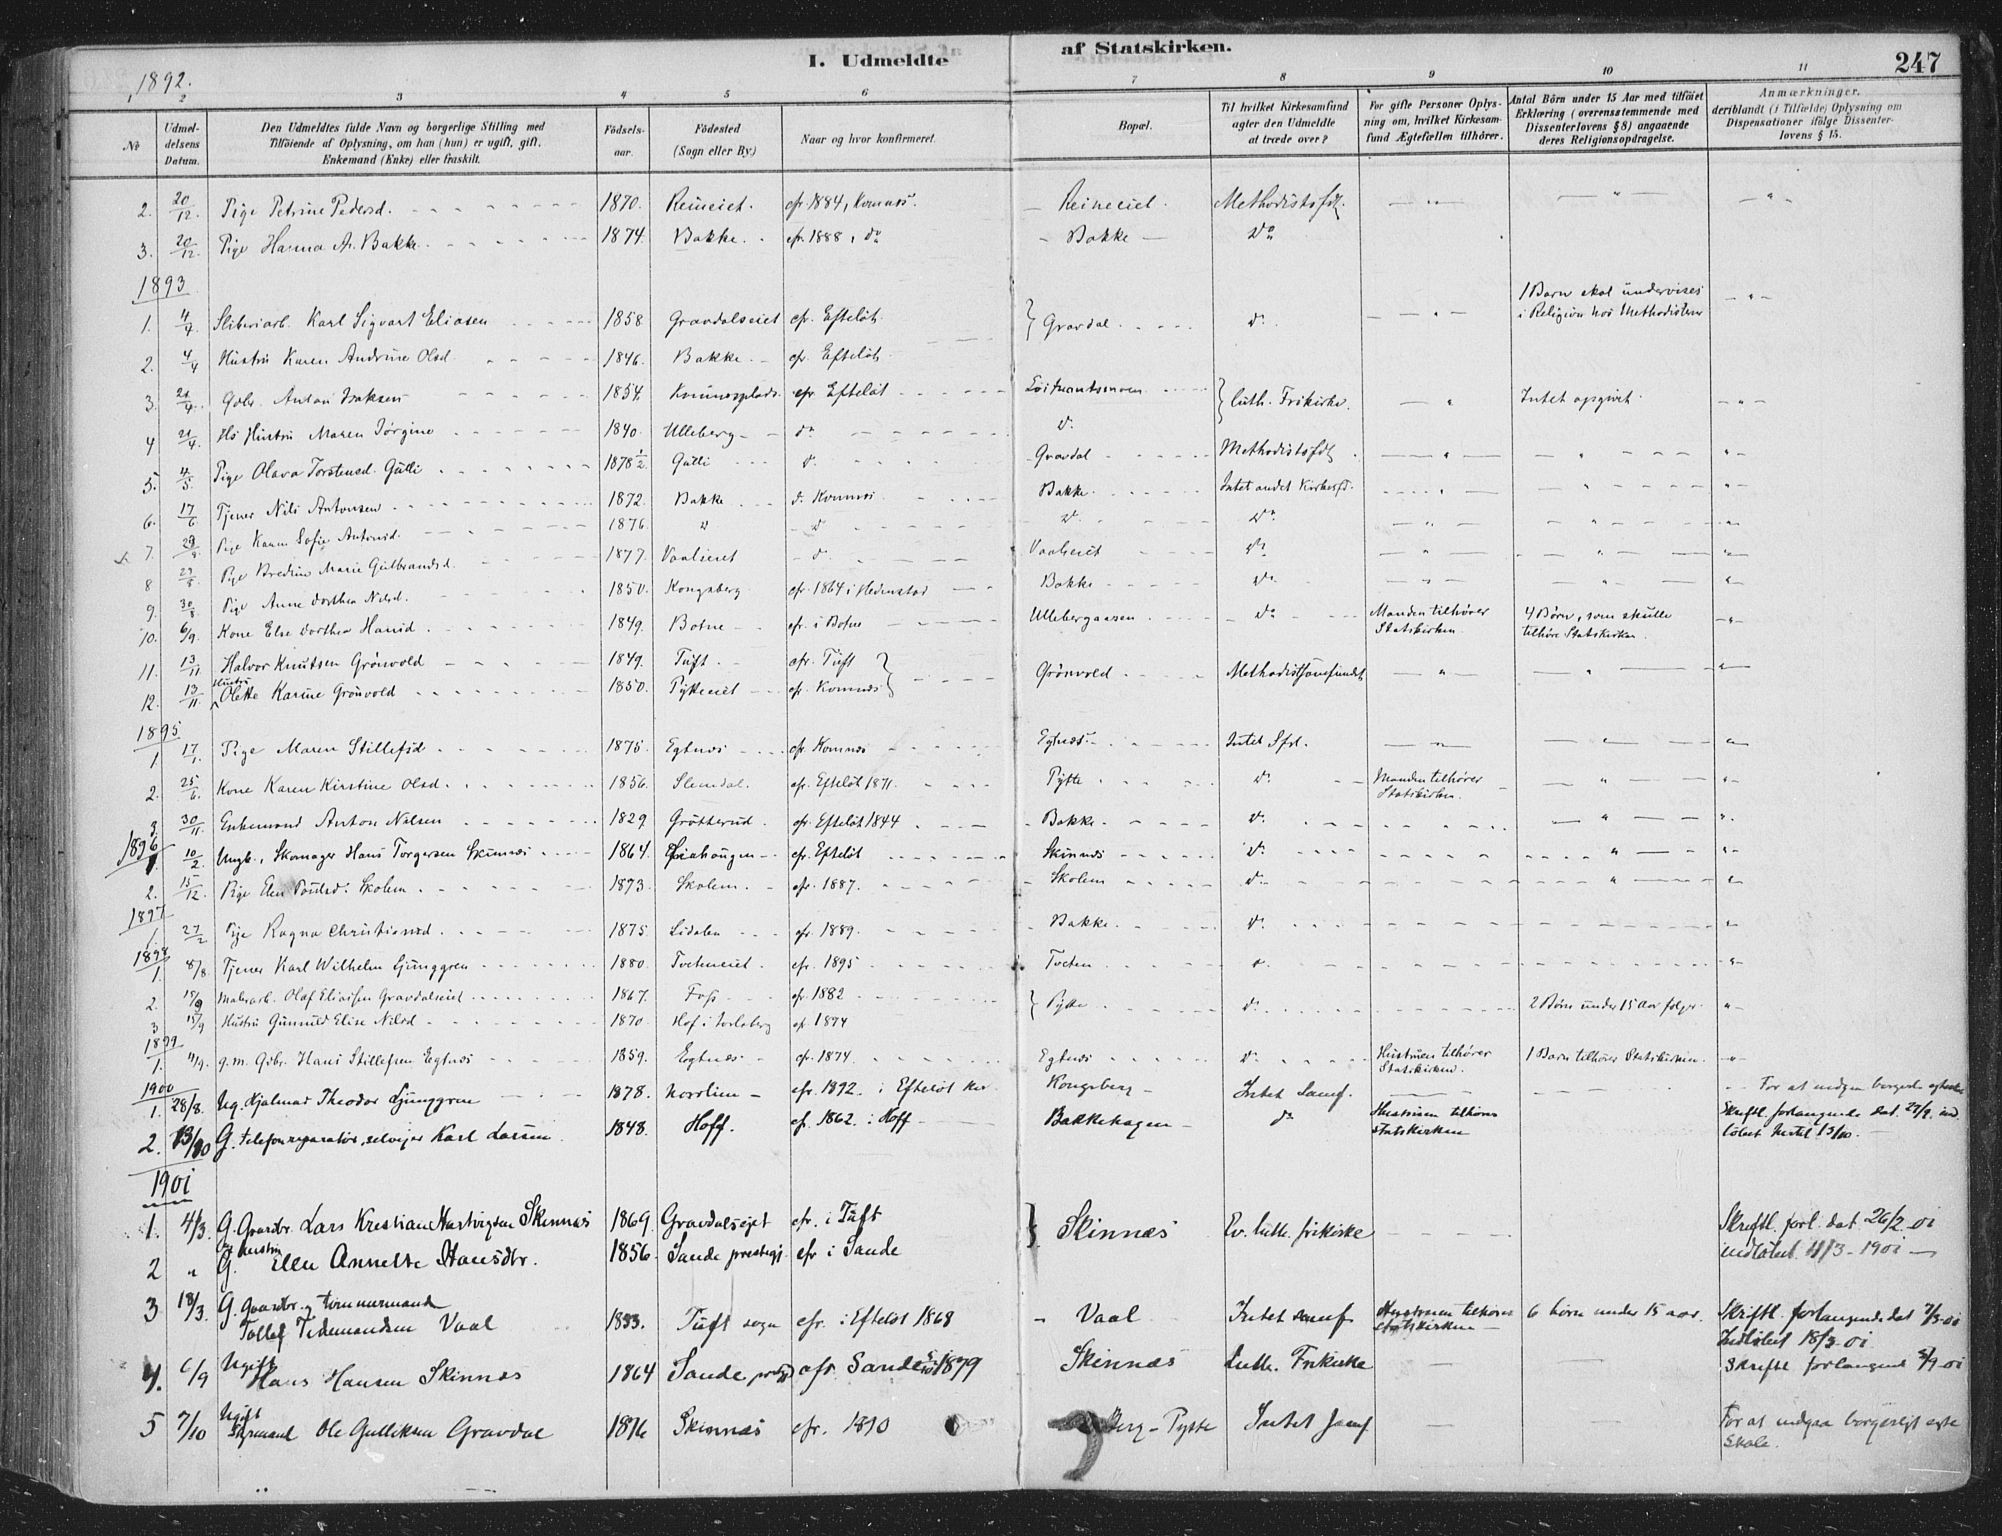 I. Udmeldte af Statskirken. 247
1892.
1 2 3 4 5 6 7 8 9 10 11
No
Udmeldelsens Datum.
Den Udmeldtes fulde Navn og borgerlige Stilling med
Tilføiende af Oplysning, om han (hun) er ugift, gift,
Enkemand (Enke) eller fraskilt.
Fødselsaar.
Fødested
(Sogn eller By.)
Naar og hvor konfirmeret.
Bopæl.
Til hvilket Kirkesamfund
agter den Udmeldte
at træde over?
For gifte Personer Oplysning om, hvilket Kirkesamfund Ægtefællen tilhører.
Antal Børn under 15 Aar med tilføiet
Erklæring (overensstemmende med
Dissenterlovens § 8) angaaende
deres Religionsopdragelse.
Anmærkninger,
deriblandt (i Tilfælde) Oplysning om
Dispensationer ifølge Dissenterlovens § 15.
2. 20/12. Pige Petrine Pedersd. 1870. Reineiet. cfr 1884, Komnæs. Reineeiet. Methodistsfd.
3. 20/12 Pige Hanna A. Bakke 1874. Bakke. cfr. 1888, do Bakke do
1893
1. 4/4 Sliberiarb. Karl Sigvart Eliasen 1858 Gravdalseiet cfr. Efteløt. Gravdal. do 1 Barn skal undervises
i Religion hos Methodisterne
2. 4/4 Hustru Karen Andrine Olsd. 1846. Bakke. cfr. Efteløt
3. 21/4. Gdbr. Anton Isaksen 1854. Komnæsplads. cfr. Efteløt Løitnantsmoen luth. Frikirke. Intet opgivet.
4 21/4. Hs Hustru Maren Jørgine 1840. Ulleberg do do
5. 4/5 Pige Olava Torstensd. Gulli 1878 1/2. Gulli d. Gravdal Methodistsfd.
6. 17/6 Tjener Nils Antonsen 1872. Bakke d. Komnæs Bakke. Intet andet Kirkesfd.
7. 29/8 Pige Karen Sofie Antonsd. 1876. d d d. do
8 29/8 Pige Bredine Marie Gulbrandsd. 1877. Vaalseiet d. Vaalseiet do
9. 30/8 Pige Anne Dorthea Nilsd. 1850. Kongsberg cfr. 1864 i Hedenstad Bakke do
10. 6/9. Kone Else Dorthea Hansd. 1849. Botne cfr. i Botne Ullebergaasen do Manden tilhører
Statskirken. 4 Børn, som skulle
tilhøre Statskirken.
11. 13/11 Halvor Knutsen Grønvold 1849. Tuft. cfr. Tuft Grønvold Methodistsamfundet
12. 13/11. Hustru Olette Karine Grønvold 1850. Pytteeiet cfr. Komnæs
1895
1 17/1. Pige Maren Stillefsd. 1875. Egtnæs cfr. Komnæs Egtnæs. Intet Sfd.
2. 25/6. Kone Karen Kirstine Olsd. 1856. Slemdal. cfr. Efteløt 1871. Pytte do Manden tilhører
Statskirken.
3. 30/11. Enkemand Anton Nilsen 1829 Grøtterud. cfr. Efteløt 1844 Bakke. do
1896
1. 10/2. Ungk., Skomager Hans Torgersen Skinnæs 1864. cfr. Efteløt Skinnæs do
2. 15/12. Pige Elen Poulsd. Skolem 1873. Skolem. cfr. 1887. Skolem do
1897
1. 27/2 Pige Ragna Christiansd. 1875 Lidalen cfr. 1889. Bakke. do
1898
1. 8/8. Tjener Karl Wilhelm Ljunggren 1880. Tveteneiet. cfr. 1895 Tveten d.
2. 15/9 Malerarb. Olaf Eliassen Gravdalseiet 1867. Foss cfr. 1882 Pytte do 2 Børn under 15 Aar følger
3 15/9 Hustru Gunnild Elise Nilsd 1870 Hof i Jarlsberg cfr. 1874
1899
1. 11/9. g.m. Gdbr. Hans Stillefsen Egtnæs 1859. Egtnæs cfr. 1874. Egtnæs do Hustruen tilhører
Statskirken. 1 Barn tilhører Statskirken.
1900
1. 28/8. Ug. Hjalmar Theodor Ljunggren 1878. Norrlien cfr. 1892. i Efteløt kir. Kongsberg Intet Samf. For at indgaa borgerl. egteskab
2. 13/10 G. Telefonreparatør, selveier Karl Larsen 1848. Hoff. cf. 1862. i Hoff Bakkehagen do Hustruen tilhører
Statskirken Skriftl. forlangende dat. 27/9.
13/10.
1901
1. 4/3. G. Gaardbr. Lars Kristian Hartvigsen Skinnæs 1869. Gravdalsejet cfr. i Tuft Skinnæs Ev. luth. frikirke Skriftl. forl. dat 26/2 01
indløbet 4/3-1901
2 " og Hustru G. Ellen Annette Hansdtr. 1856. Sande prestegj. cfr i Sande
3 18/3. G. Gaardbr. og tømmermand
Tollef Tidemandsen Vaal 1853. Tuft sogn cfr. i Efteløt 1868 Vaal Intet samf. Hustruen tilhører
Statskirken 6 børn under 15 aar. Skriftl. forlangende dat 7/3-01
Indløbet 18/3-01
4. 6/9 Ugift
Hans Hansen Skinnæs 1864 Sande cfr. Sande 1879 Skinnæs Luth. Frikirke Skriftl forlangend 5/9-01
5 7/10 Ugift
Styrmand Ole Gulliksen Gravdal 1876 Skinnæs cfr. 1890 Berg-Pytte Intet Samf. For at indgaa borgerligt egte
skab.